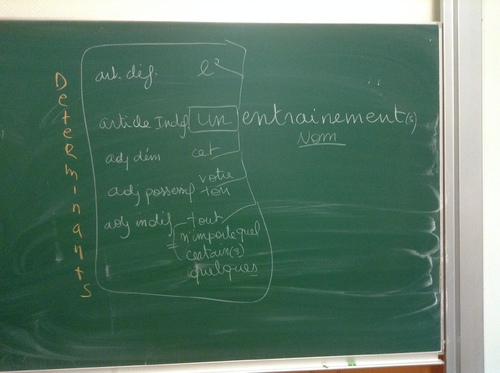 Determinants
art. déf. l'
article Indéf un entrainement(s)
Nom
adj dém cet
adj possessif votre
ton
adj indéf tout
n'importe quel
certain(s)
quelques